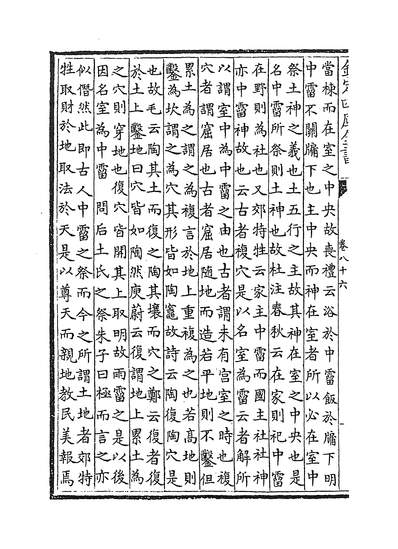 欽定四庫全書
卷八十六
當棟而在室之中央故喪禮云浴於中霤飯於牖下明
中霤不關牖下也主中央而神在室者所以必在室中
祭土神之義也土五行之主故其神在室之中央也是
名中霤所祭則土神也故杜注春秋云在家則祀中霤
在野則為社也又郊特牲云家主中霤而國主社社神
亦中霤神故也云古者複穴是以名室為霤云者解所
以謂室中為中霤之由也古者謂未有宫室之時也複
穴者謂窟居也古者窟居隨地而造若平地則不鑿但
累土為之謂之為複言於地上重複為之也若高地則
鑿為坎謂之為穴其形皆如陶竈故詩云陶復陶穴是
也故毛云陶其土而復之陶其壤而穴之鄭云復者復
於土上鑿地曰穴皆如陶然庾蔚云復謂地上累土為
之穴則穿地也復穴皆開其上取明故雨霤之是以後
因名室為中霤　問后土氏之祭朱子曰極而言之亦
似僭然此即古人中霤之祭而今之所謂土地者郊特
牲取財於地取法於天是以尊天而親地教民美報焉